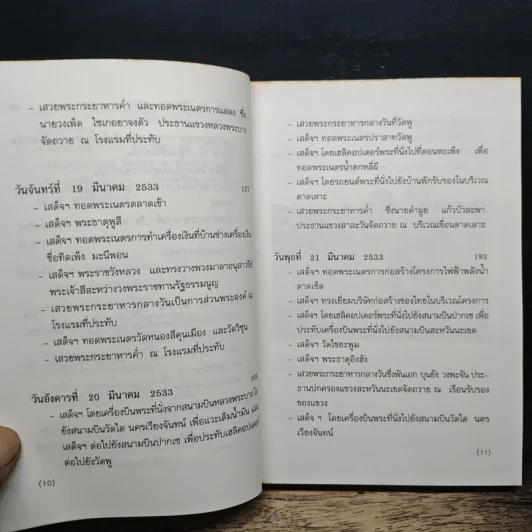 - เสวยพระกระยาหารค่ำ และทอดพระเนตรการแสดง ซึ่ง
นายวงเพ็ด ไซเกอยาจงตัว ประธานแขวงหลวงพระบาง
จัดถวาย ณ โรงแรมที่ประทับ
วันจันทร์ที่ 19 มีนาคม 2533
- เสด็จฯ ทอดพระเนตรตลาดเช้า
- เสด็จฯ พระธาตุพูสี
- เสด็จฯ ทอดพระเนตรการทำเครื่องเงินที่บ้านช่างเครื่องเงิน
ชื่อทิดเพ็ง มะนีพอน
- เสด็จฯ พระราชวังหลวง และทรงวางพวงมาลาอนุสาวรีย์
พระเจ้าสีสะหว่างวงพระราชทานรัฐธรรมนูญ
- เสวยพระกระยาหารกลางวันเป็นการส่วนพระองค์ ณ
โรงแรมที่ประทับ
- เสด็จฯ ทอดพระเนตรวัดหนองสีคูนเมือง และวัดวิชุน
- เสวยพระกระยาหารค่ำ ณ โรงแรมที่ประทับ
วันอังคารที่ 20 มีนาคม 2533
- เสด็จฯ โดยเครื่องบินพระที่นั่งจากสนามบินหลวงพระบาง ไป
ยังสนามบินวัดไต นครเวียงจันทน์ เพื่อแวะเติมน้ำมัน และ
เสด็จฯ ต่อไปยังสนามบินปากเซ เพื่อประทับเฮลิคอปเตอร์
ต่อไปยังวัดพู
(10)
- เสวยพระกระยาหารกลางวันที่วัดพู
- เสด็จฯ ทอดพระเนตรปราสาทวัดพู
- เสด็จฯ โดยเฮลิคอปเตอร์พระที่นั่งไปที่ดอนพะเพ็ง เพื่อ
ทอดพระเนตรน้ำตกหลี่ผี
- เสด็จฯ โดยรถยนต์พระที่นั่งไปยังบ้านพักรับรองในบริเวณ
ตาดเลาะ
- เสวยพระกระยาหารค่ำ ซึ่งนายคำผูย แก้วบัวละพา
ประธานแขวงสาละวันจัดถวาย ณ บริเวณเขื่อนตาดเลาะ
วันพุธที่ 21 มีนาคม 2533 193
- เสด็จฯ ทอดพระเนตรการก่อสร้างโครงการไฟฟ้าพลังน้ำ
ตาดเซ็ด
- เสด็จฯ ทรงเยี่ยมบริษัทก่อสร้างของไทยในบริเวณโครงการ
- เสด็จฯ โดยเฮลิคอปเตอร์พระที่นั่งไปยังสนามบินปากเซ เพื่อ
ประทับเครื่องบินพระที่นั่งไปยังสนามบินสะหวันนะเขต
- เสด็จฯ วัดไชยะพูม
- เสด็จฯ พระธาตุอิงฮัง
- เสวยพระกระยาหารกลางวันซึ่งพันเอก บุนยัง วงพะจัน ประ-
ธานปกครองแขวงสะหวันนะเขตจัดถวาย ณ เรือนรับรอง
ของแขวง
- เสด็จ ฯ โดยเครื่องบินพระที่นั่งไปยังสนามบินวัดไต นคร
เวียงจันทน์
(11)